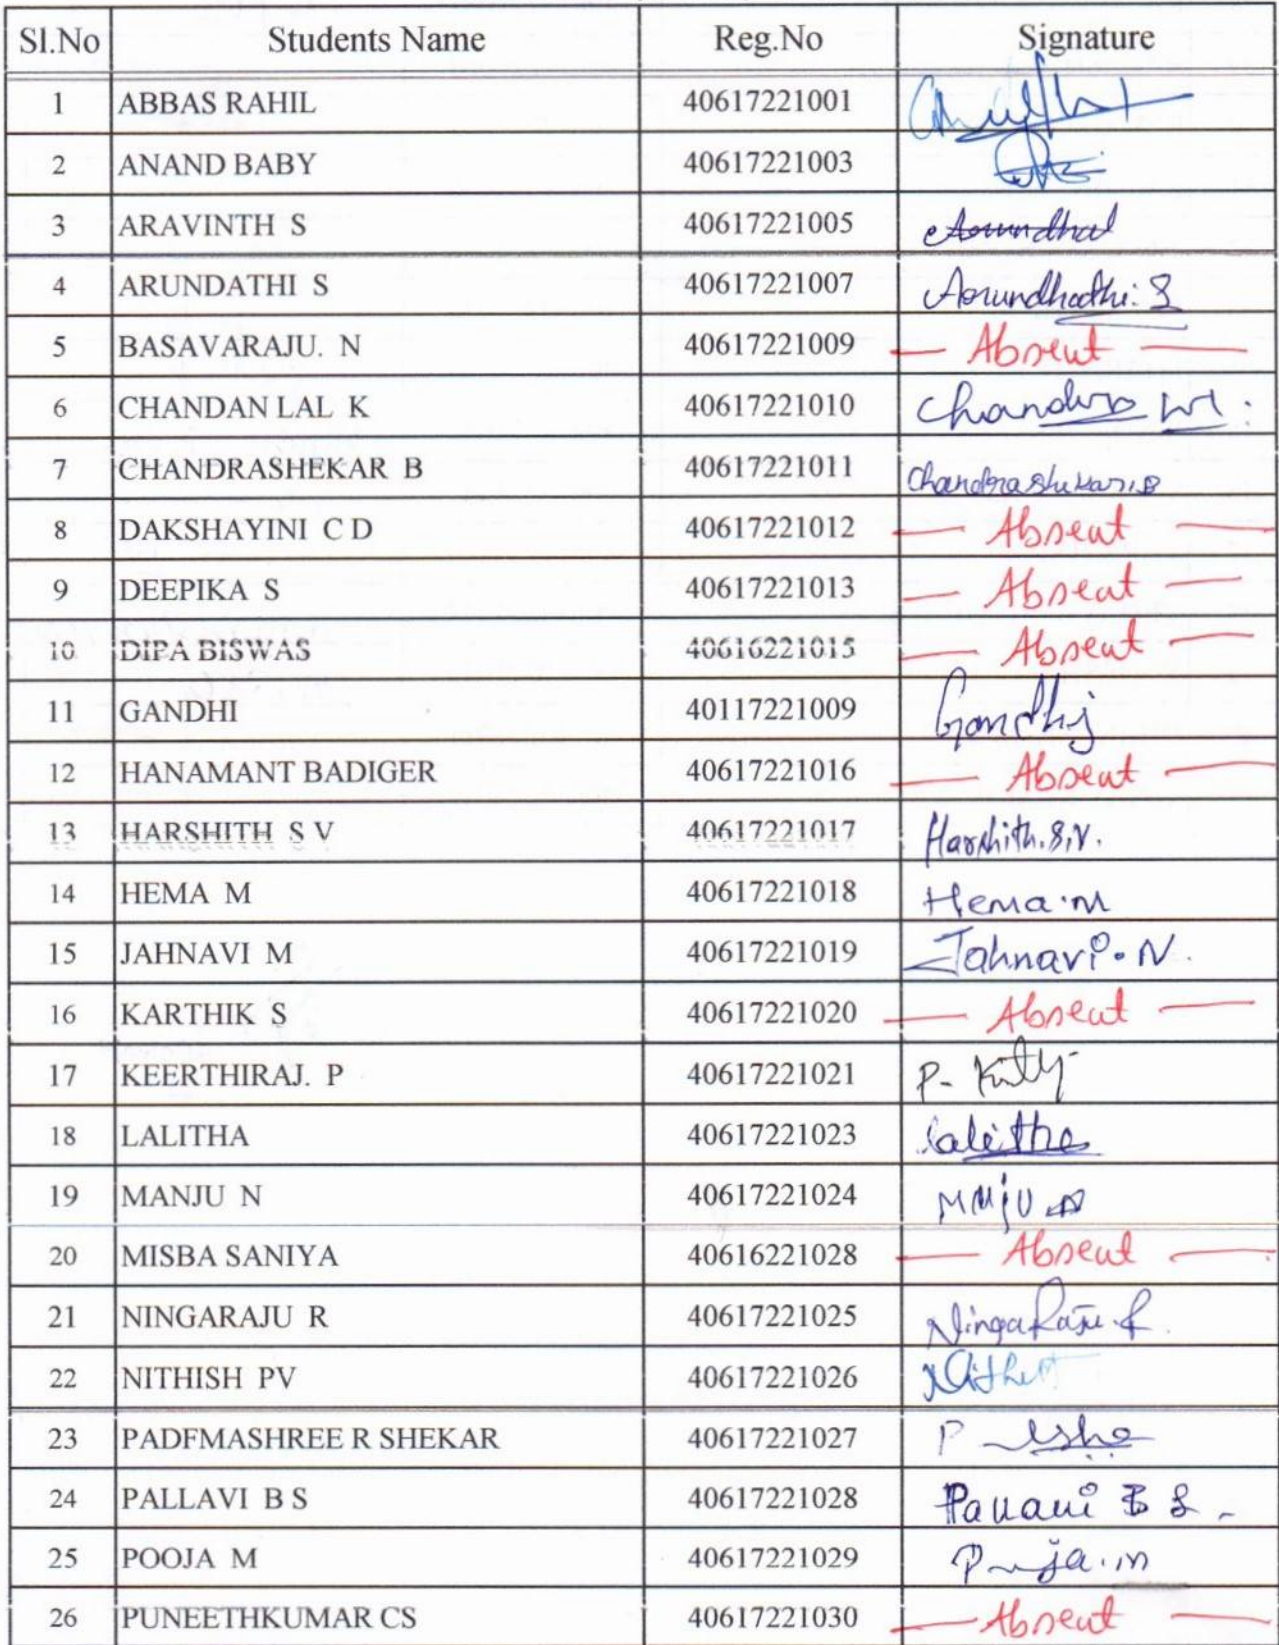 Sl.No Students Name Reg.No Signature
1 ABBAS RAHIL 40617221001
2 ANAND BABY 40617221003
3 ARAVINTH S 40617221005 Arundhal
4 ARUNDATHI S 40617221007 Arundhathi. S
5 BASAVARAJU. N 40617221009 — Absent —
6 CHANDAN LAL K 40617221010
7 CHANDRASHEKAR B 40617221011 Chandrashekar.B
8 DAKSHAYINI C D 40617221012 — Absent —
9 DEEPIKA S 40617221013 — Absent —
10 DIPA BISWAS 40616221015 — Absent —
11 GANDHI 40117221009 Gandhi
12 HANAMANT BADIGER 40617221016 — Absent —
13 HARSHITH S V 40617221017 Harshith.S.V.
14 HEMA M 40617221018 Hema.M
15 JAHNAVI M 40617221019 Jahnavi.N.
16 KARTHIK S 40617221020 — Absent —
17 KEERTHIRAJ. P 40617221021
18 LALITHA 40617221023 Lalitha
19 MANJU N 40617221024
20 MISBA SANIYA 40616221028 — Absent —
21 NINGARAJU R 40617221025 NingaRaju.R
22 NITHISH PV 40617221026
23 PADFMASHREE R SHEKAR 40617221027
24 PALLAVI B S 40617221028 Pallavi B S
25 POOJA M 40617221029 Pooja.m
26 PUNEETHKUMAR CS 40617221030 — Absent —